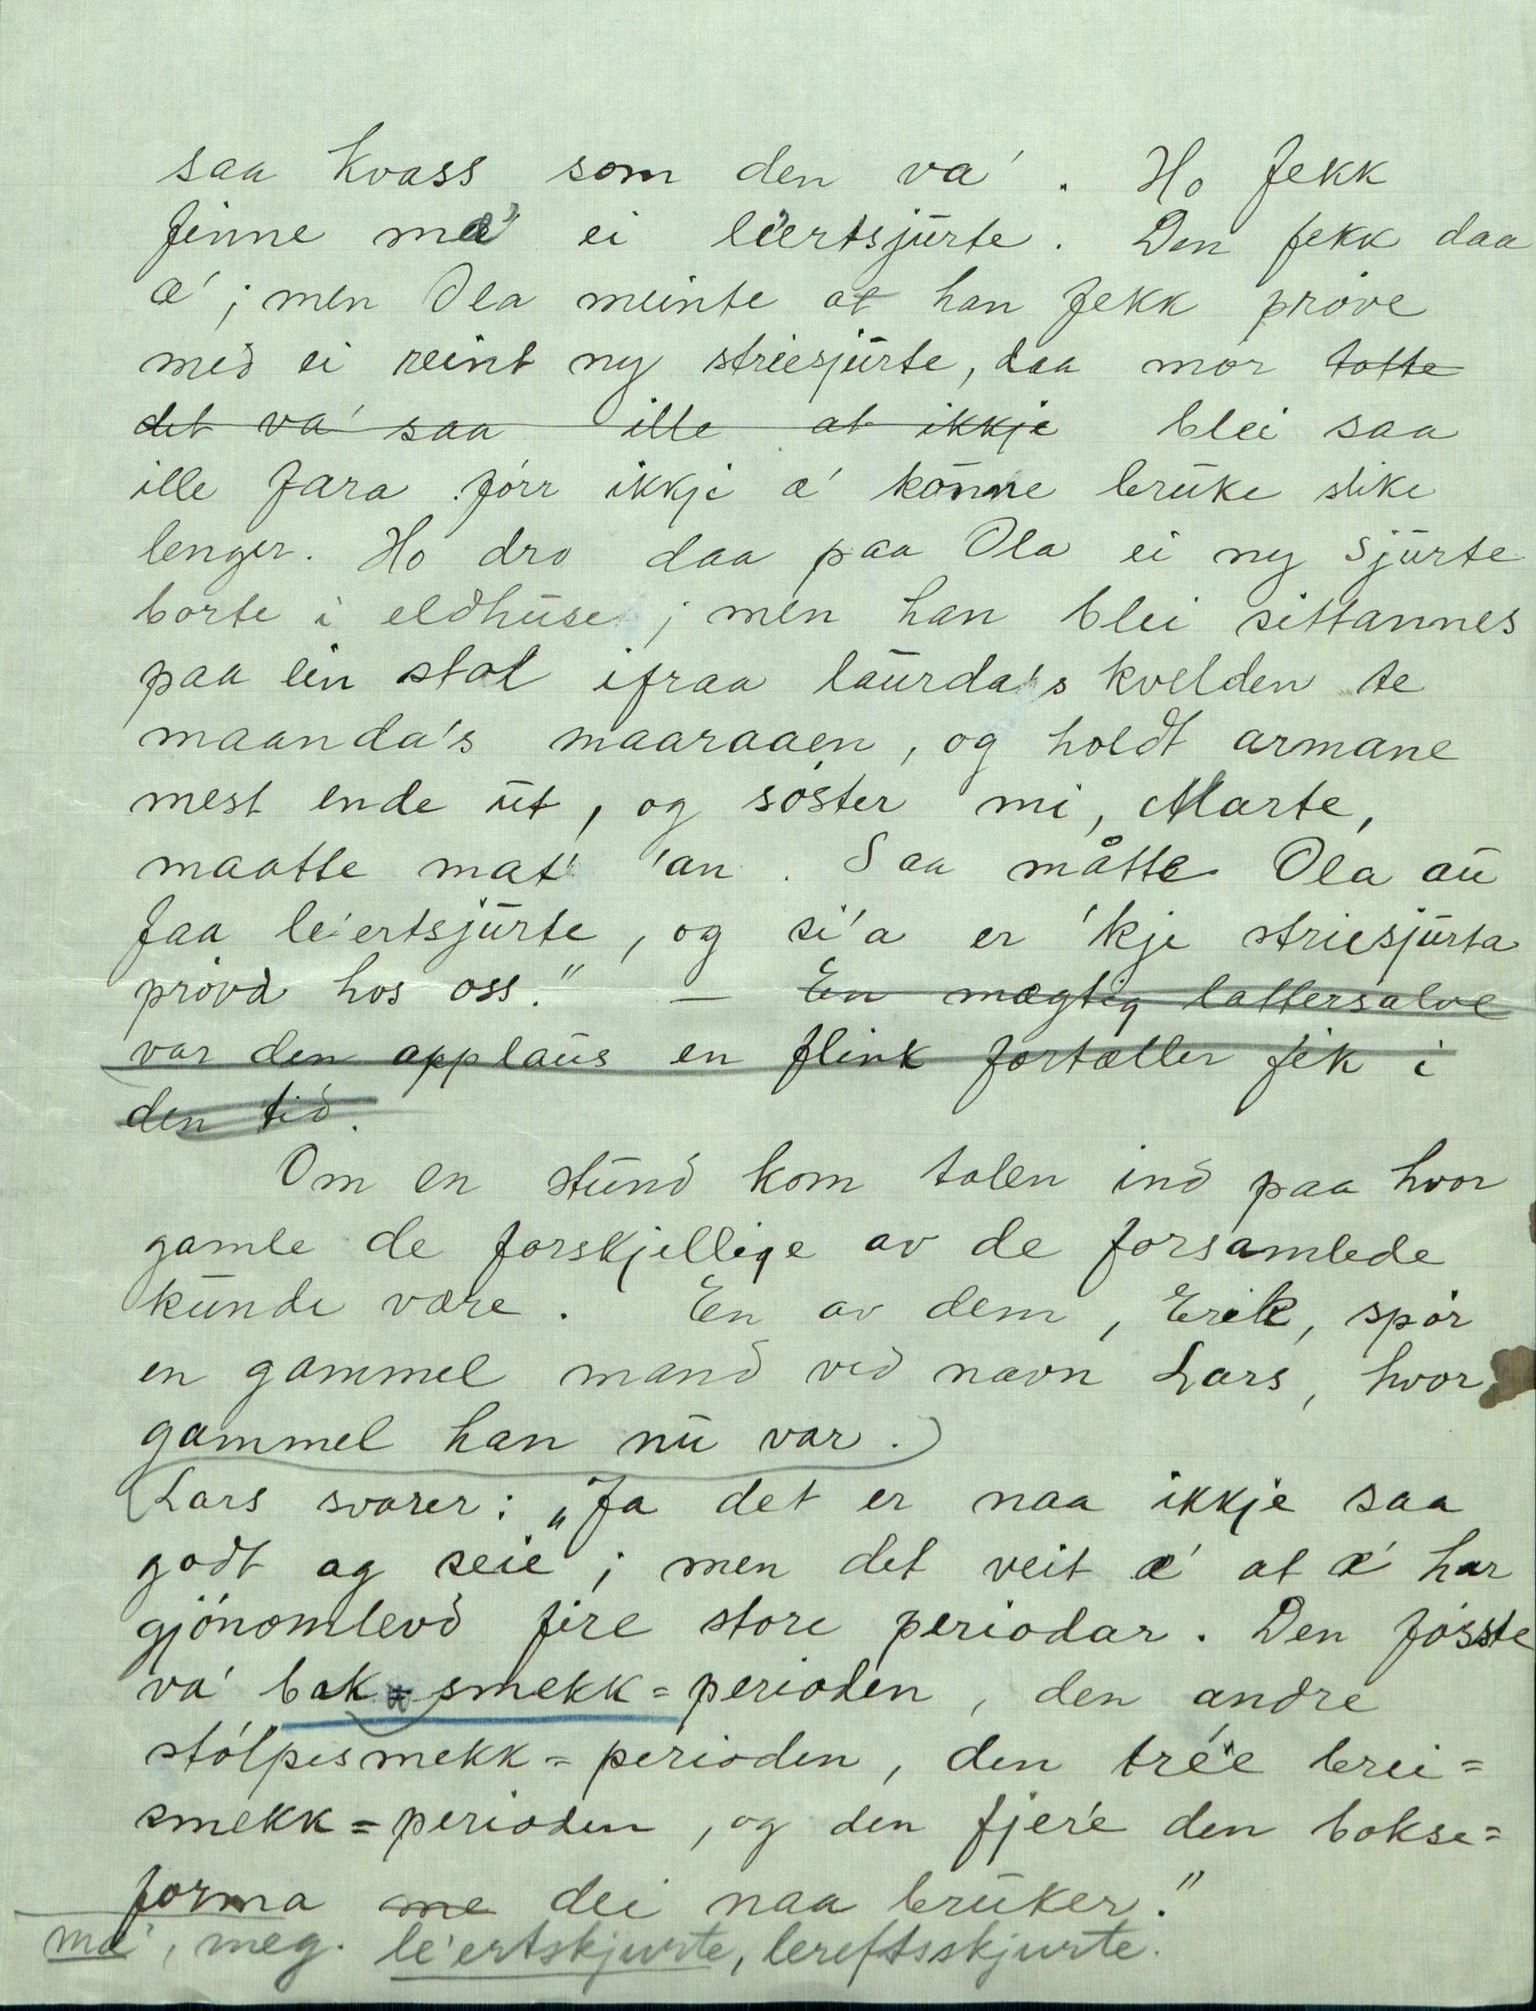 saa kvass som den va'. Ho fekk
finne mæ' ei le'ertsjurte. Den fekk daa
æ'; men Ola meinte at han fekk prøve
med ei reint ny striesjurte, daa mor totte
det va' saa ille at ikkje blei saa
ille faraførr ikkje æ' kønne bruke slike
lenger. Ho dro daa paa Ola ei ny sjurte
borte i eldhuse; men han blei sittannes
paa ein stol ifraa laurda's kvelden te
maanda's maaraaen, og holdt armane
mest ende ut, og søster mi, Marte,
maatte mat' 'an. Saa måtte Ola au
faa le'ertsjurte, og si'a er 'kje striesjurta
prøvd hos oss." — En mægtig lattersalve
var den applaus en flink fortæller fik i
den tid.
Om en stund kom talen ind paa hvor
gamle de forskjellige av de forsamlede
kunde være. En av dem, Erik, spør
en gammel mand ved navn Lars, hvor
gammel han nu var.
Lars svarer: „Ja det er naa ikkje saa
godt ag seie; men det veit æ' at æ' har
gjønomlevd fire store periodar. Den føsste
va' bak-smekk=perioden, den andre
stølpesmekk=perioden, den tre'e brei=
smekk=perioden, og den fjere den bokse=
forma me dei naa bruker."
mæ', meg. le'ertskjurte, lereftsskjurte.